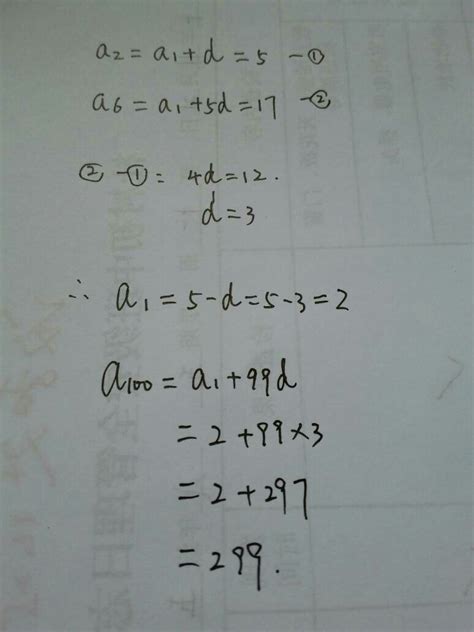 a₂ = a₁ + d = 5 — ①
a₆ = a₁ + 5d = 17 — ②
② - ①: 4d = 12.
d = 3
∴ a₁ = 5 - d = 5 - 3 = 2
a₁₀₀ = a₁ + 99d
= 2 + 99 × 3
= 2 + 297
= 299.